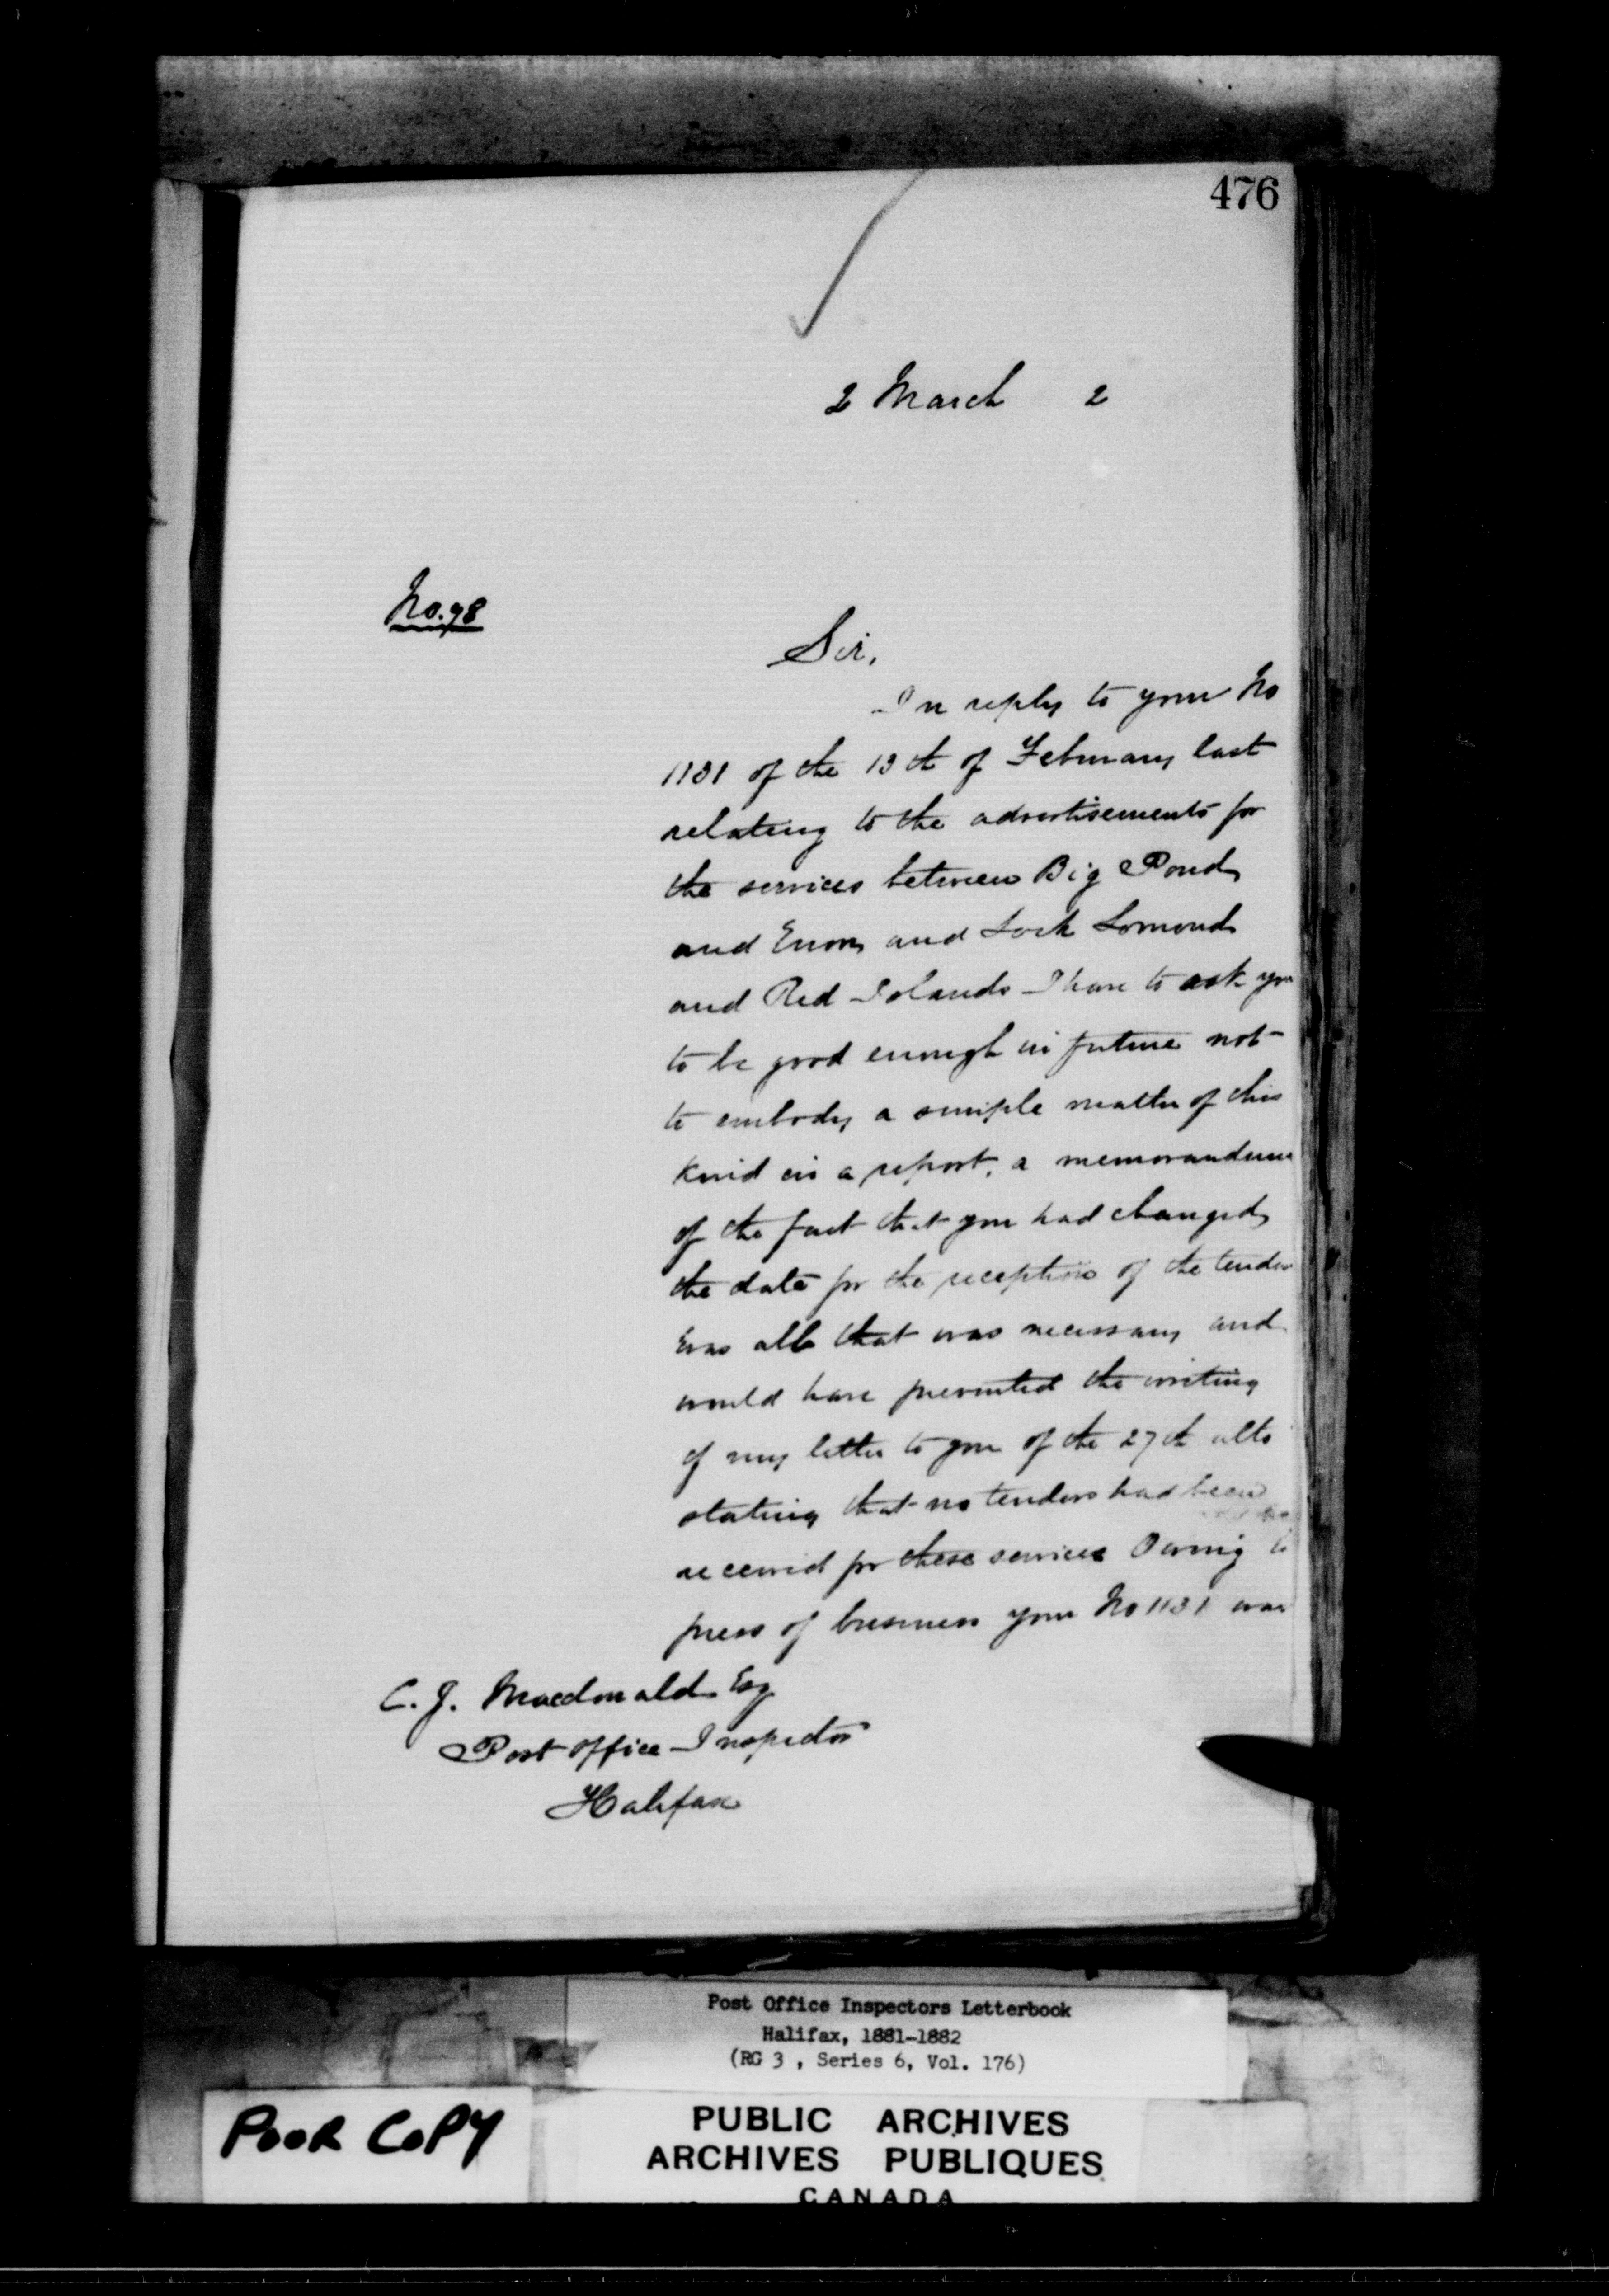 476
2 March 2
No. 98
Sir,
In reply to your No
1131 of the 13th of February last
relating to the advertisements for
the services between Big Pond
and Enon and Loch Lomond
and Red Islands I have to ask you
to be good enough in future not
to embody a simple matter of this
kind in a report, a memorandum
of the fact that you had changed
the date for the reception of the tender
was all that was necessary and
would have prevented the writing
of my letter to you of the 27th ulto
stating that no tenders had been
received for these services Owing to
press of business your No 1131 was
C. J. Macdonald Esq
Post Office Inspector
Halifax
Post Office Inspectors Letterbook
Halifax, 1881-1882
(RG 3 , Series 6, Vol. 176)
POOR COPY
PUBLIC ARCHIVES
ARCHIVES PUBLIQUES
CANADA